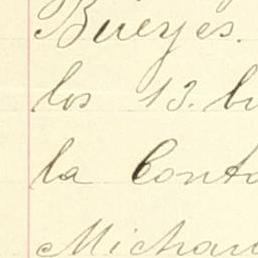 Bueyes.
los 13. bu
la Conta
Michau